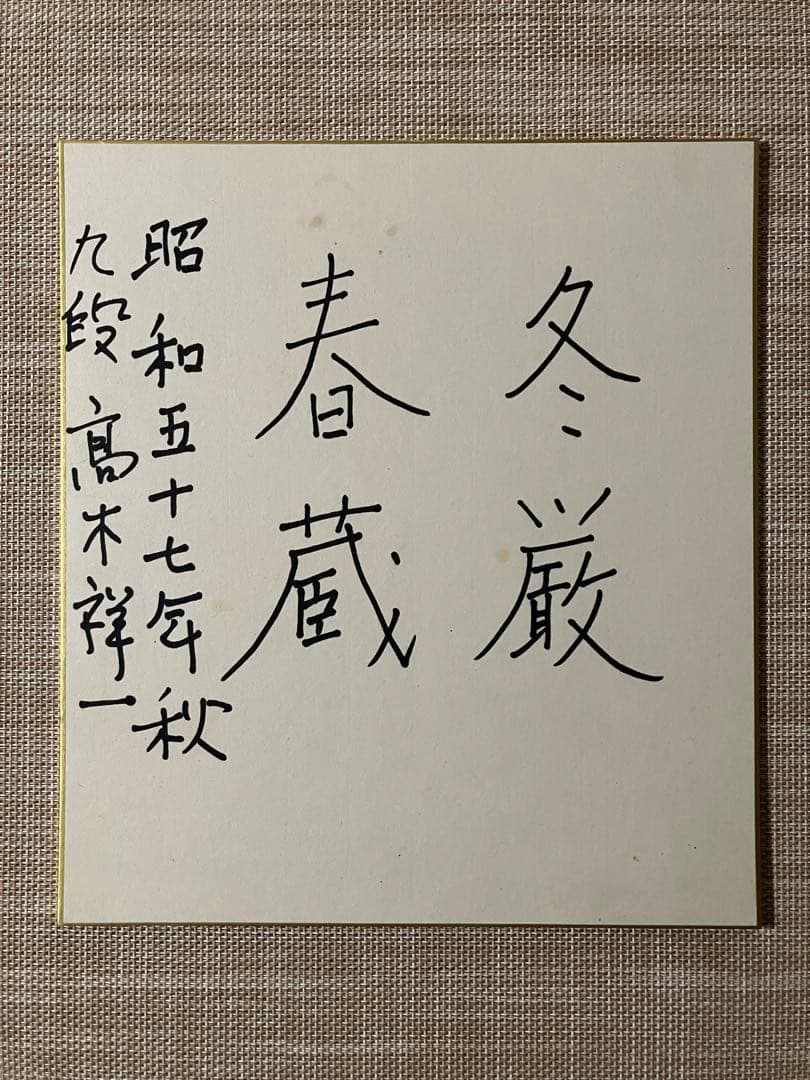 冬厳
春蔵
昭和五十七年秋
九段 高木祥一